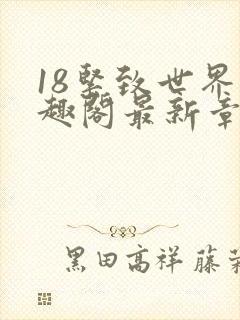 18坚致世界
趣阁最新章
黑田高祥 藤菜